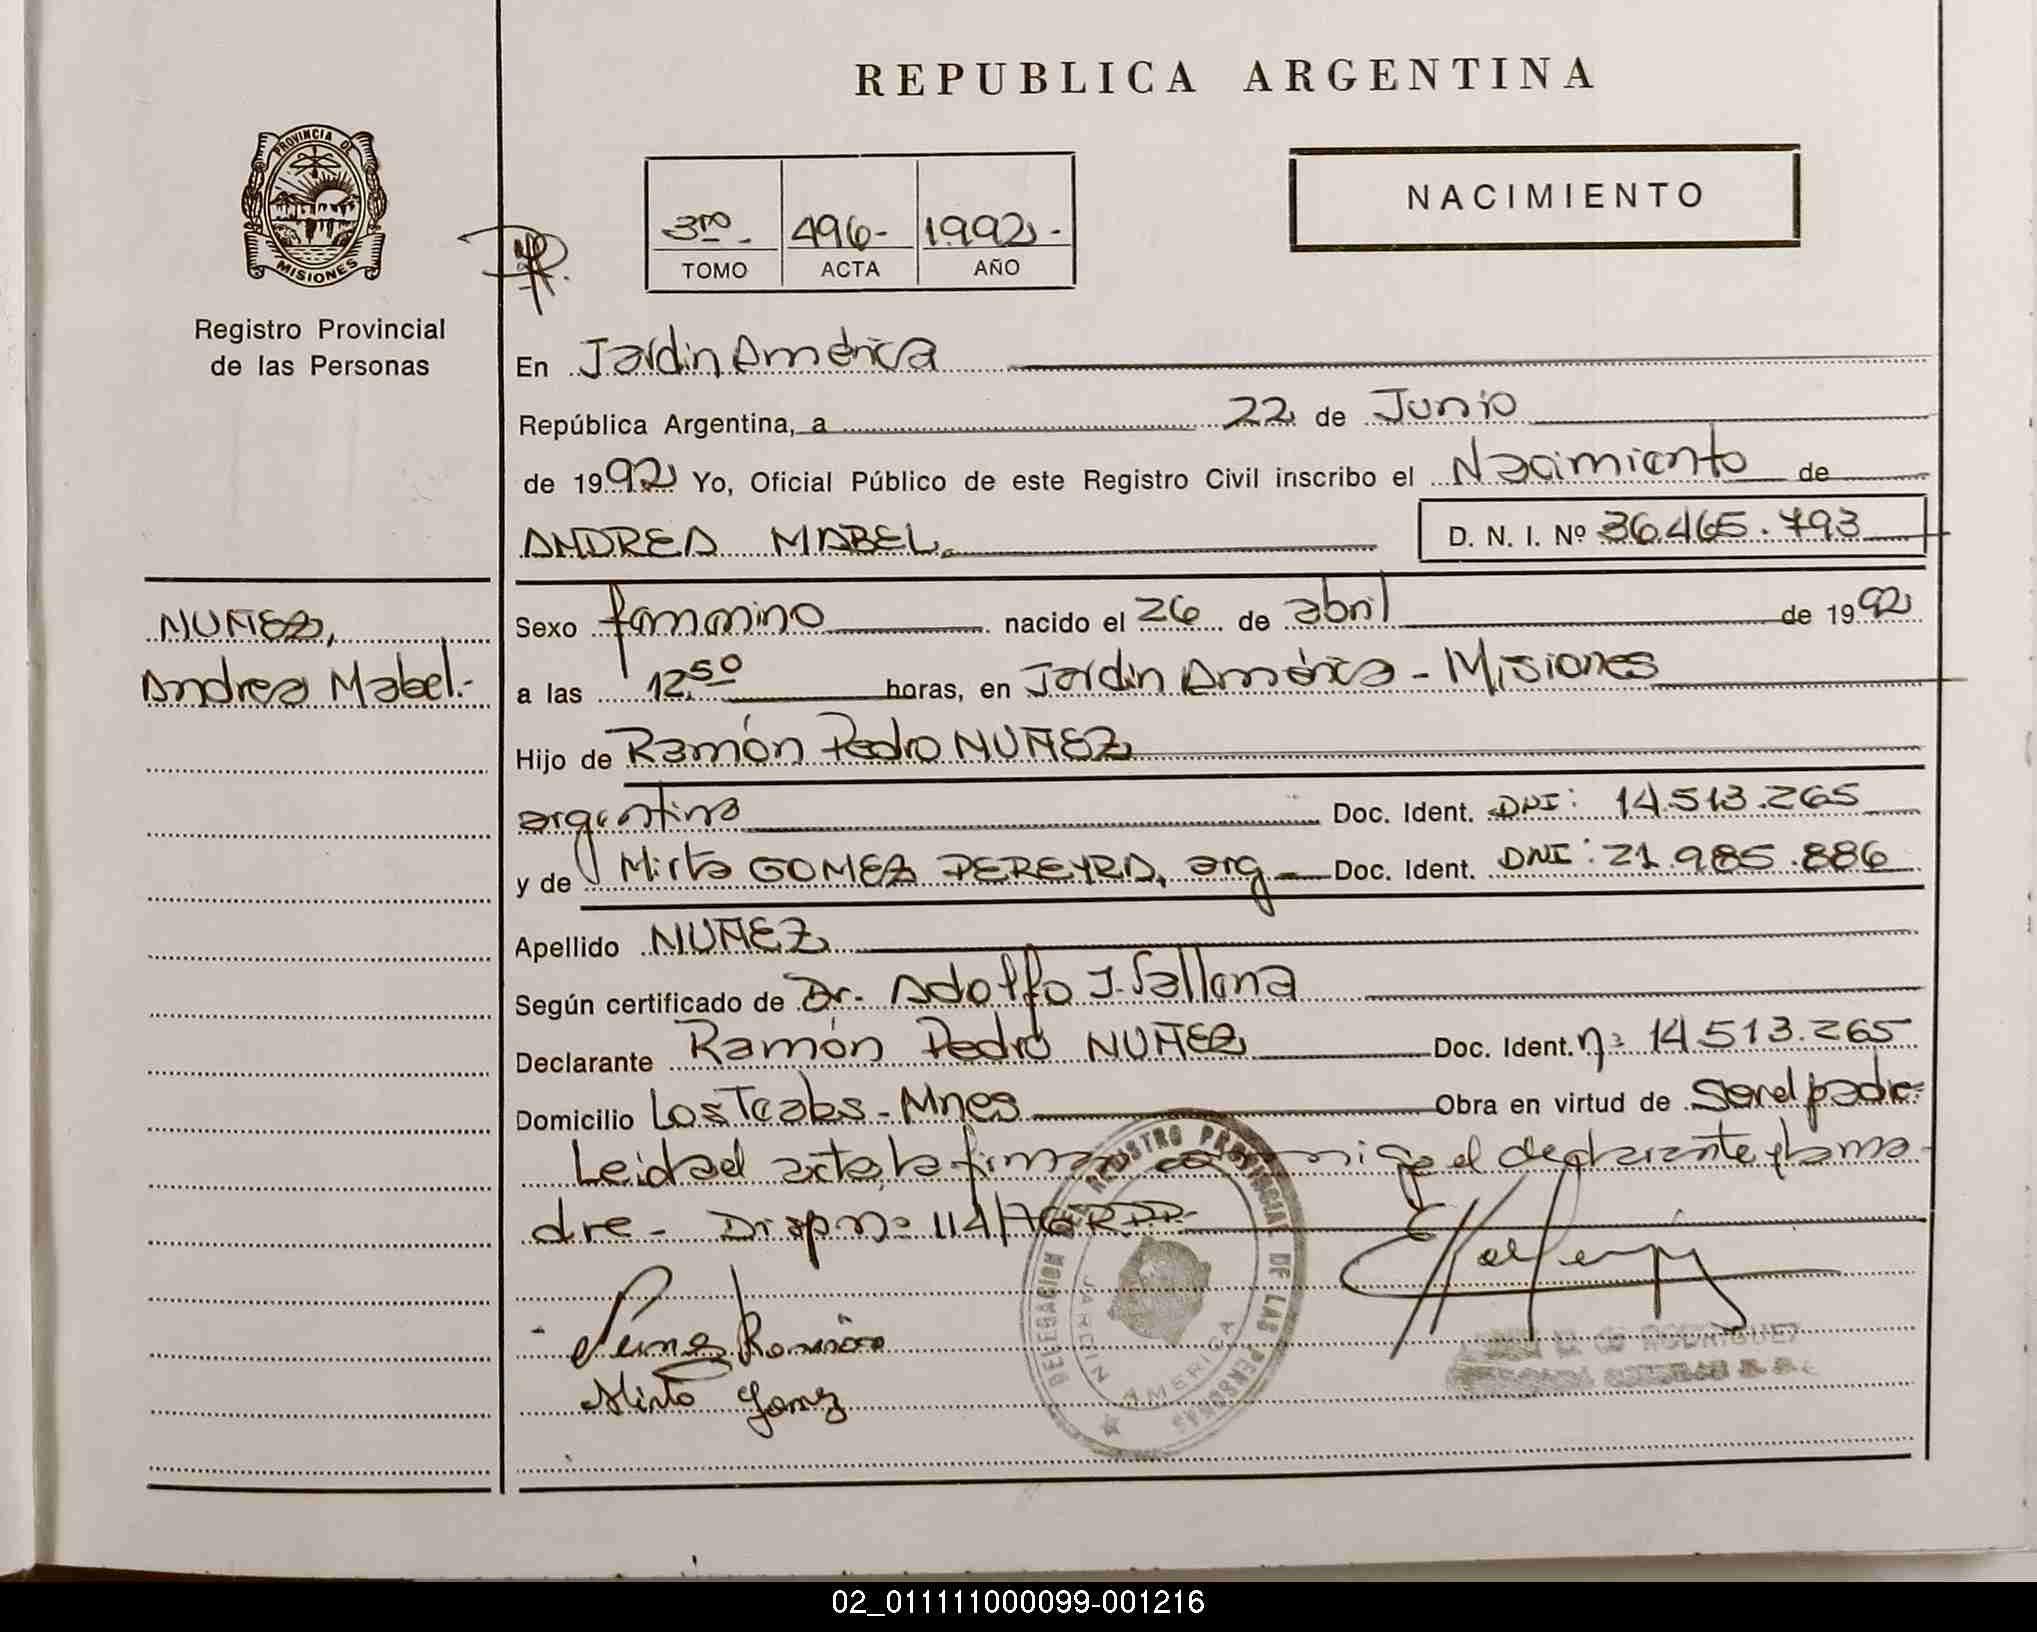 REPUBLICA ARGENTINA
PROVINCIA DE
MISIONES
Registro Provincial
de las Personas
NACIMIENTO
3ro - 496- 1992 -
TOMO ACTA AÑO
En Jardín América
República Argentina, a 22 de Junio
de 1992 Yo, Oficial Público de este Registro Civil inscribo el Nacimiento de
ANDREA MABEL
D. N. I. Nº 36.465.793
NUÑEZ,
Andrea Mabel.-
Sexo femenino nacido el 26 de abril de 1992
a las 12,50 horas, en Jardín América - Misiones
Hijo de Ramón Pedro NUÑEZ
argentino Doc. Ident. DNI: 14.513.265
y de Mirta GOMEZ PEREYRA, arg Doc. Ident. DNI: 21.985.886
Apellido NUÑEZ
Según certificado de Dr. Adolfo J.
Declarante Ramón Pedro NUÑEZ Doc. Ident. nº 14.513.265
Domicilio Los Teales - Mnes Obra en virtud de ser el padre
Leida el acta, la firman conmigo el declarante y la ma-
dre - Disp nº 114/76 RPP-
Nunez Ramón
Mirta Gomez
DELEGACION DEL REGISTRO PROVINCIAL DE LAS PERSONAS
JARDIN AMERICA
de RODRIGUEZ
02_011111000099-001216